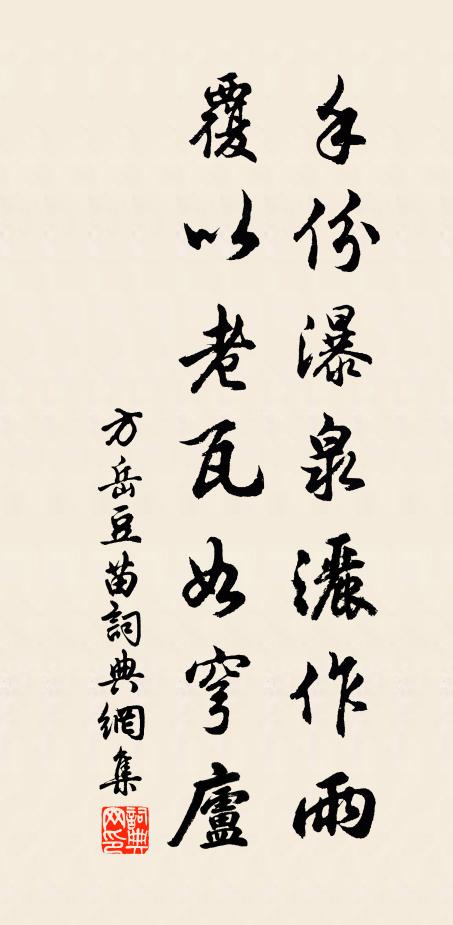 手份瀑泉灑作雨
覆以老瓦如穹廬
方岳豆苗詞典網集
詞典
网印